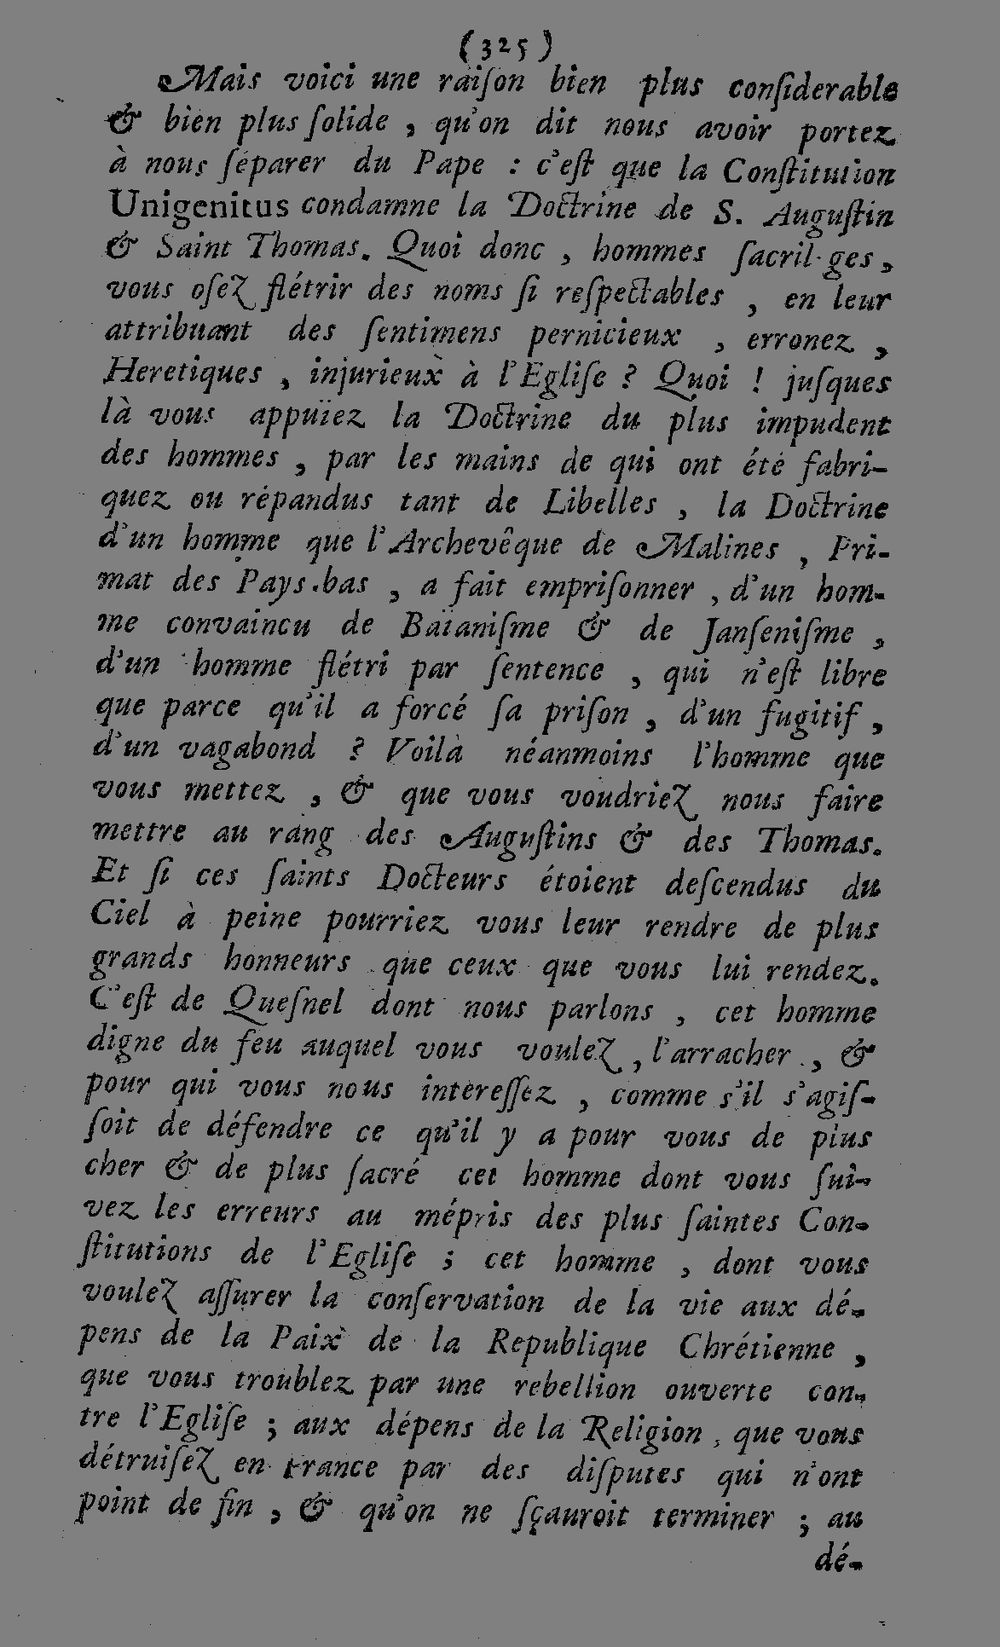 (325)
Mais voici une raiſon bien plus conſiderable
& bien plus ſolide, qu'on dit nous avoir portez
à nous ſéparer du Pape : c'eſt que la Conſtitution
Unigenitus condamne la Doctrine de S. Auguſtin
& Saint Thomas. Quoi donc, hommes ſacril ges,
vous oſez flétrir des noms ſi reſpectables, en leur
attribuant des ſentimens pernicieux, erronez,
Heretiques, injurieux à l'Egliſe ? Quoi ! juſques
là vous appuïez la Doctrine du plus impudent
des hommes, par les mains de qui ont été fabri-
quez ou répandus tant de Libelles, la Doctrine
d'un homme que l'Archevêque de Malines, Pri-
mat des Pays.bas, a fait empriſonner, d'un hom-
me convaincu de Baïaniſme & de Janſeniſme,
d'un homme flétri par ſentence, qui n'eſt libre
que parce qu'il a forcé ſa priſon, d'un fugitif,
d'un vagabond ? Voilà néanmoins l'homme que
vous mettez, & que vous voudriez nous faire
mettre au rang des Auguſtins & des Thomas.
Et ſi ces ſaints Docteurs étoient deſcendus du
Ciel à peine pourriez vous leur rendre de plus
grands honneurs que ceux que vous lui rendez.
C'eſt de Queſnel dont nous parlons, cet homme
digne du feu auquel vous voulez, l'arracher, &
pour qui vous nous intereſſez, comme s'il s'agiſ-
ſoit de défendre ce qu'il y a pour vous de plus
cher & de plus ſacré cet homme dont vous ſui-
vez les erreurs au mépris des plus ſaintes Con-
ſtitutions de l'Egliſe ; cet homme, dont vous
voulez aſſurer la conſervation de la vie aux dé-
pens de la Paix de la Republique Chrétienne,
que vous troublez par une rebellion ouverte con-
tre l'Egliſe ; aux dépens de la Religion, que vous
détruiſez en France par des diſputes qui n'ont
point de fin, & qu'on ne ſçauroit terminer ; au
dé-